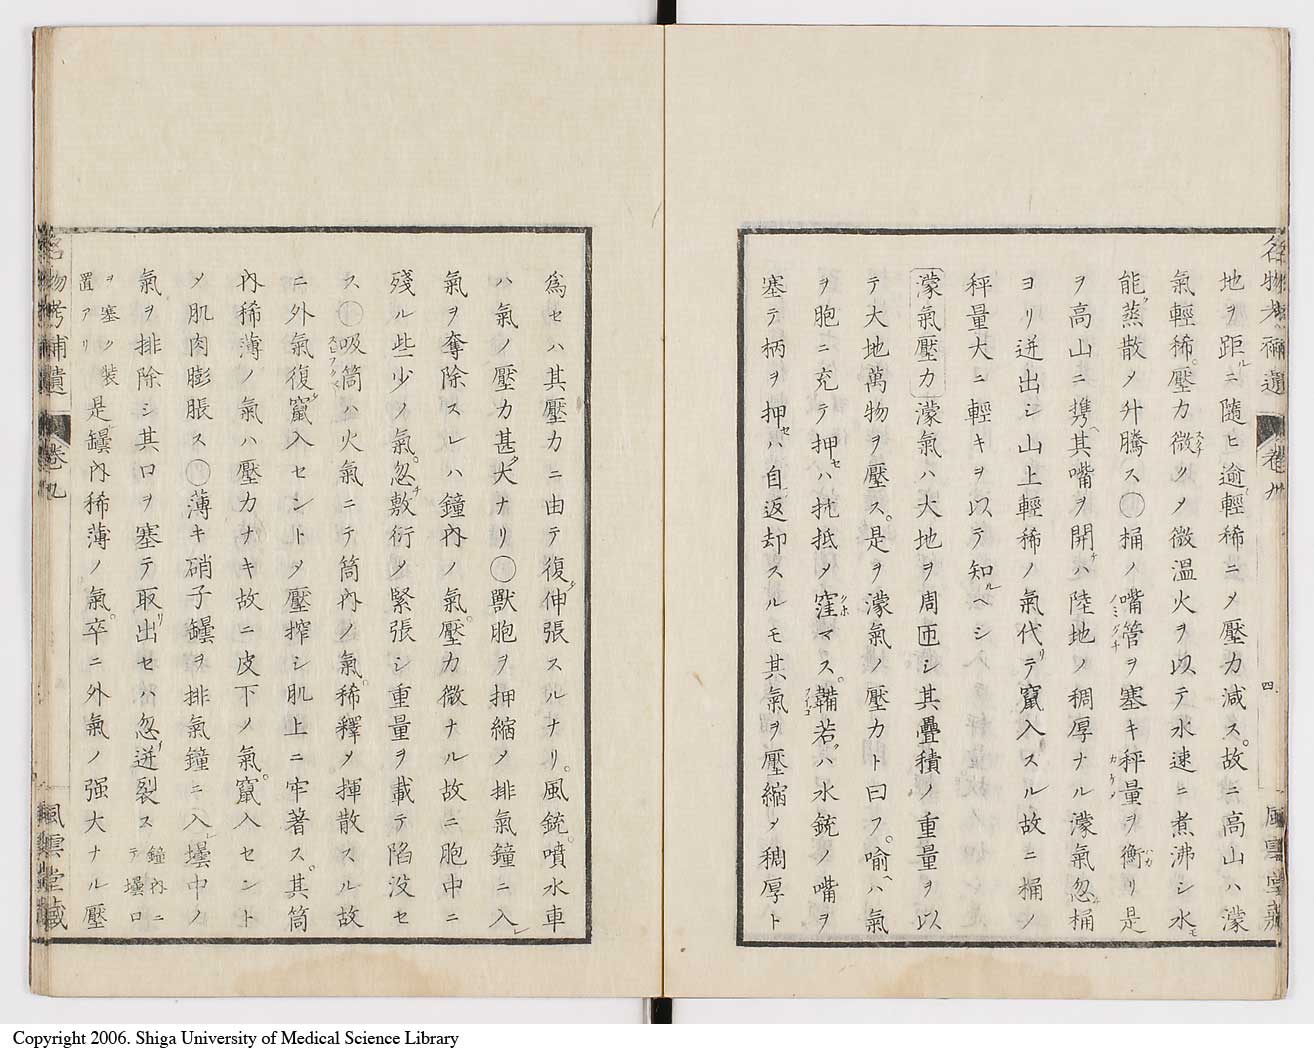 名物考補遺 卷九 四 風雲堂藏
地ヲ距ルニ隨ヒ逾輕稀ニメ壓力減ス。故ニ高山ハ濛
氣輕稀。壓力微クメ微溫火ヲ以テ水速ニ煮沸シ水モ
能蒸散メ升騰ス〇桶ノ嘴管ヲ塞キ秤量ヲ衡リ是
ヲ高山ニ携ヘ其嘴ヲ開ケハ陸地ノ稠厚ナル濛氣忽桶
ヨリ迸出シ山上輕稀ノ氣代リテ竄入スル故ニ桶ノ
秤量大ニ輕キヲ以テ知ルヘシ
濛氣壓力 濛氣ハ大地ヲ周匝シ其疊積ノ重量ヲ以
テ大地萬物ヲ壓ス。是ヲ濛氣ノ壓力ト曰フ。喩ヘハ氣
ヲ胞ニ充テ押セハ抗抵メ窪マス。鞴若ハ水銃ノ嘴ヲ
塞テ柄ヲ押セハ自返却スルモ其氣ヲ壓縮メ稠厚ト
爲セハ其壓力ニ由テ復伸張スルナリ。風銃。噴水車
ハ氣ノ壓力甚大ナリ〇獸胞ヲ押縮メ排氣鐘ニ入レ
氣ヲ奪除スレハ鐘內ノ氣。壓力微ナル故ニ胞中ニ
殘ル些少ノ氣。忽チ敷衍メ緊張シ重量ヲ載テ陷沒セ
ス〇吸筒ハ火氣ニテ筒內ノ氣。稀釋メ揮散スル故
ニ外氣復竄入セシトメ壓搾シ肌上ニ牢著ス。其筒
內稀薄ノ氣ハ壓力ナキ故ニ皮下ノ氣。竄入セント
メ肌肉膨脹ス〇薄キ硝子罎ヲ排氣鐘ニ入レ壜中ノ
氣ヲ排除シ其口ヲ塞テ取出セハ忽迸裂ス 鐘內ニテ壜口
ヲ塞ク裝置アリ 是罎內稀薄ノ氣。卒ニ外氣ノ强大ナル壓
名物考補遺 卷九 風雲堂藏
Copyright 2006. Shiga University of Medical Science Library